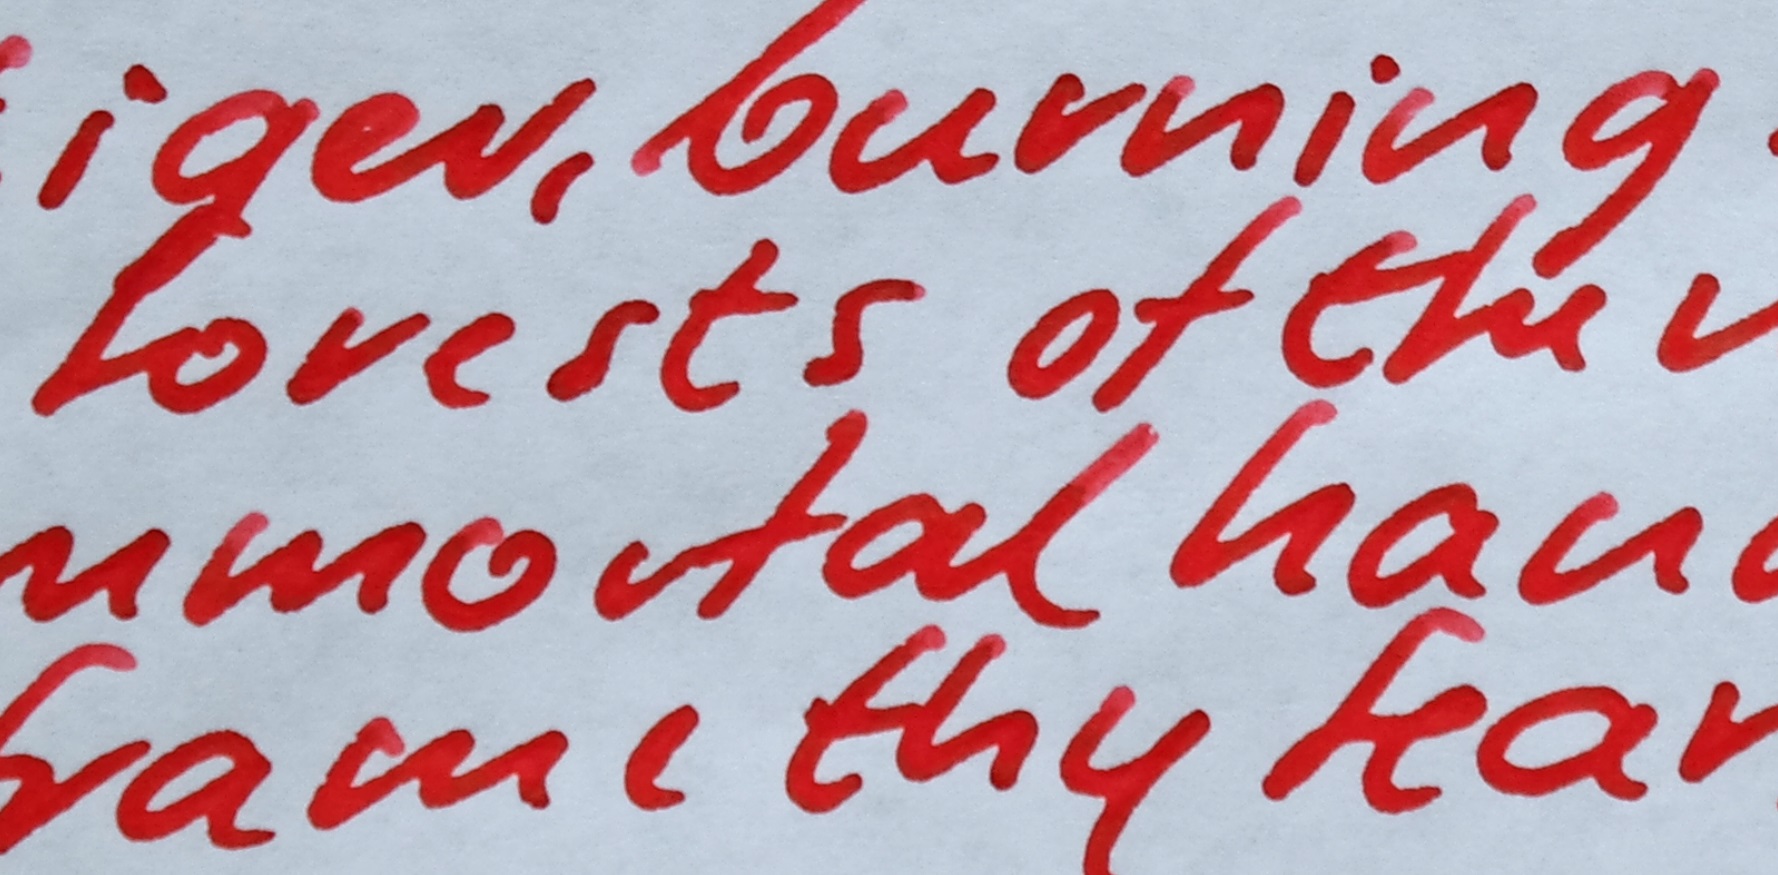 iger, burning
forests of the
mmortal han
frame thy fear